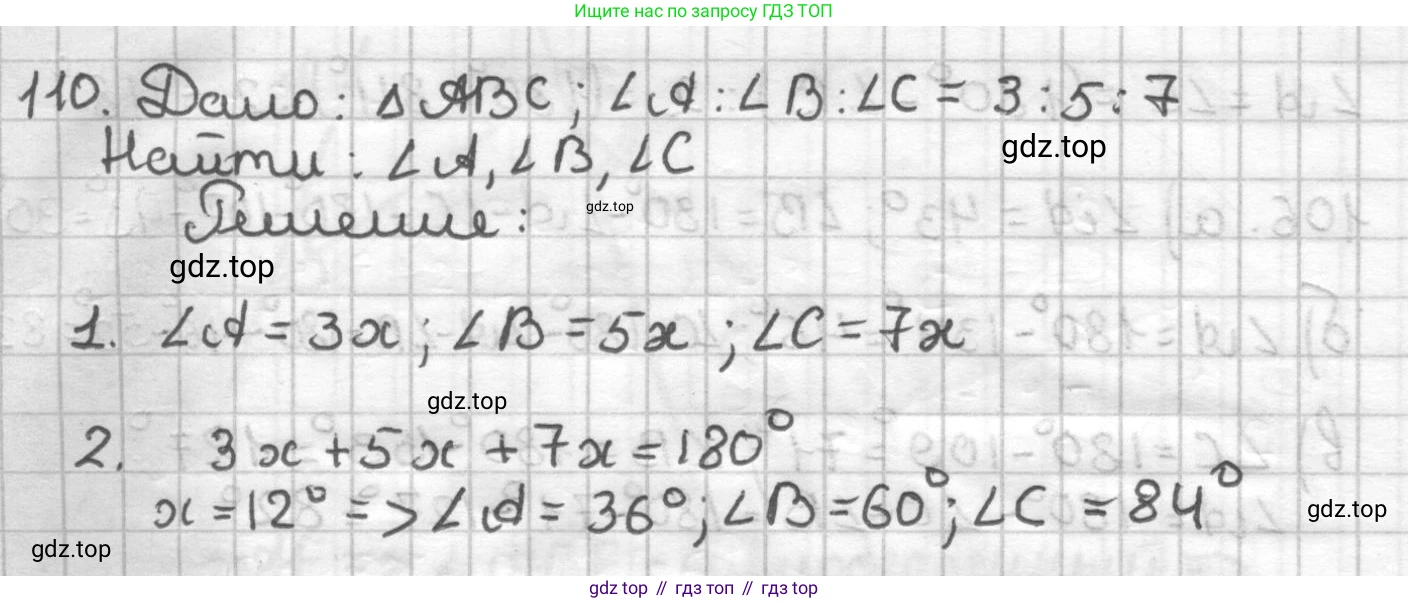 Ищите нас по запросу ГДЗ ТОП
110. Дано: Δ ABC; ∠A : ∠B : ∠C = 3 : 5 : 7
gdz.top
Найти: ∠A, ∠B, ∠C
gdz.top
Решение:
gdz.top
1. ∠A = 3x; ∠B = 5x; ∠C = 7x
gdz.top
2. 3x + 5x + 7x = 180°
x = 12° => ∠A = 36°; ∠B = 60°; ∠C = 84°
gdz.top
gdz.top
gdz top // гдз топ // гдз top